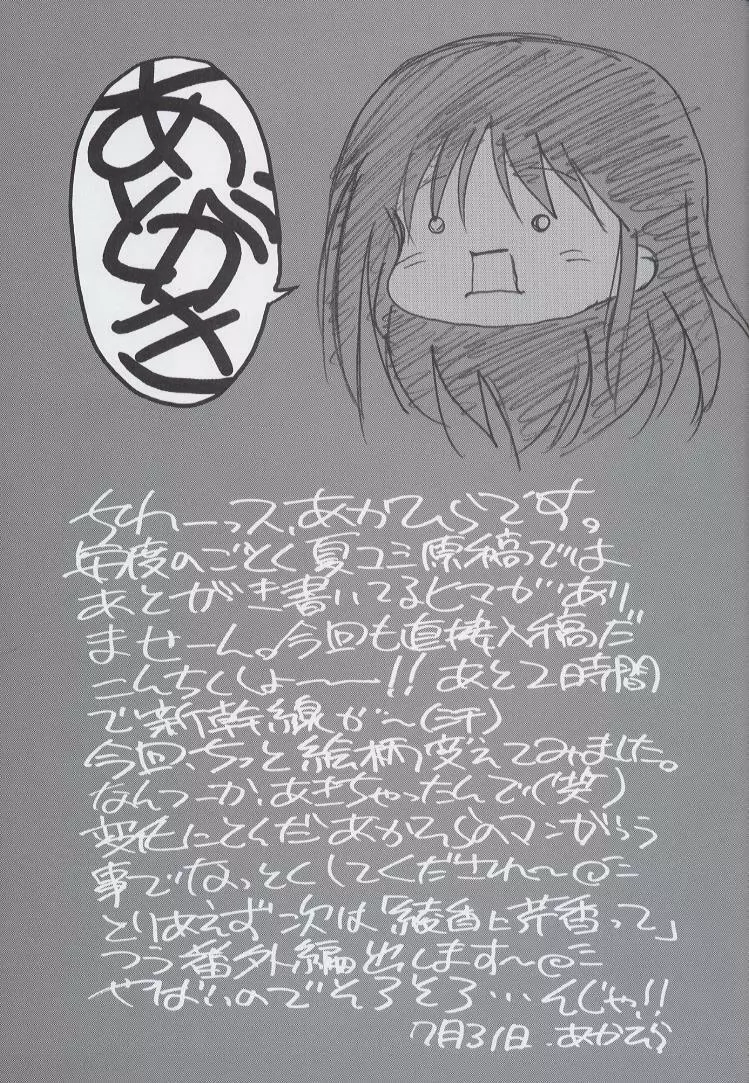 あとがき
ちわーっス、あかひらです。
毎度のごとく夏コミ原稿では
あとがき書いてるヒマがあり
ませーん。今回も直接入稿だ
こんちくしょーー!! あと2時間
で新幹線が〜(汗)
今回、ちっと絵柄変えてみました。
なんつーか、あきちゃったんで(笑)
変化にとんだあかひらのマンガっつう
事でなっとくしてくだされ〜@ミ
とりあえず次は「綾香と芹香って」
つう番外編出します〜@ミ
やばいのでそろそろ…んじゃ!!
7月31日.あかひら